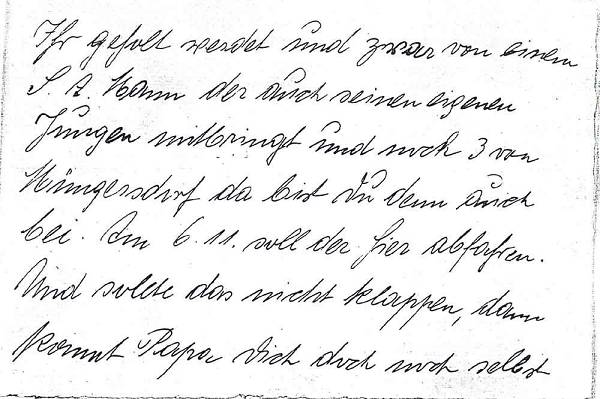 Ihr geholt werdet und zwar von einem
S. A. Mann der auch seinen eigenen
Jungen mitbringt und noch 3 von
Müngersdorf da bist Du denn auch
bei. Am 6.11. soll der hier abfahren.
Und sollte das nicht klappen, dann
kommt Papa Dich doch noch selbst